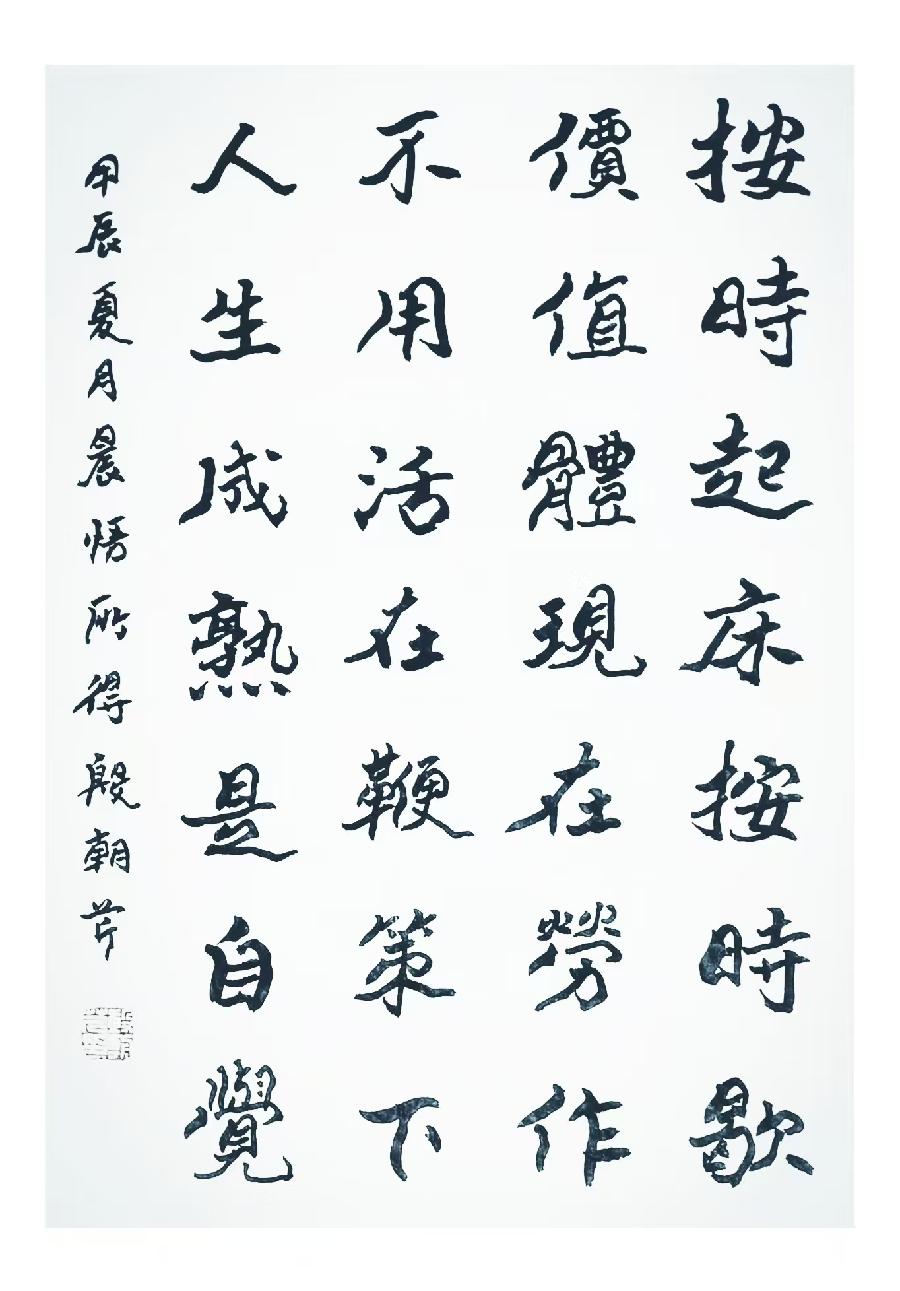 按時起床按時歇
價值體現在勞作
不用活在鞭策下
人生成熟是自覺
甲辰夏月晨悟所得殷朝芹